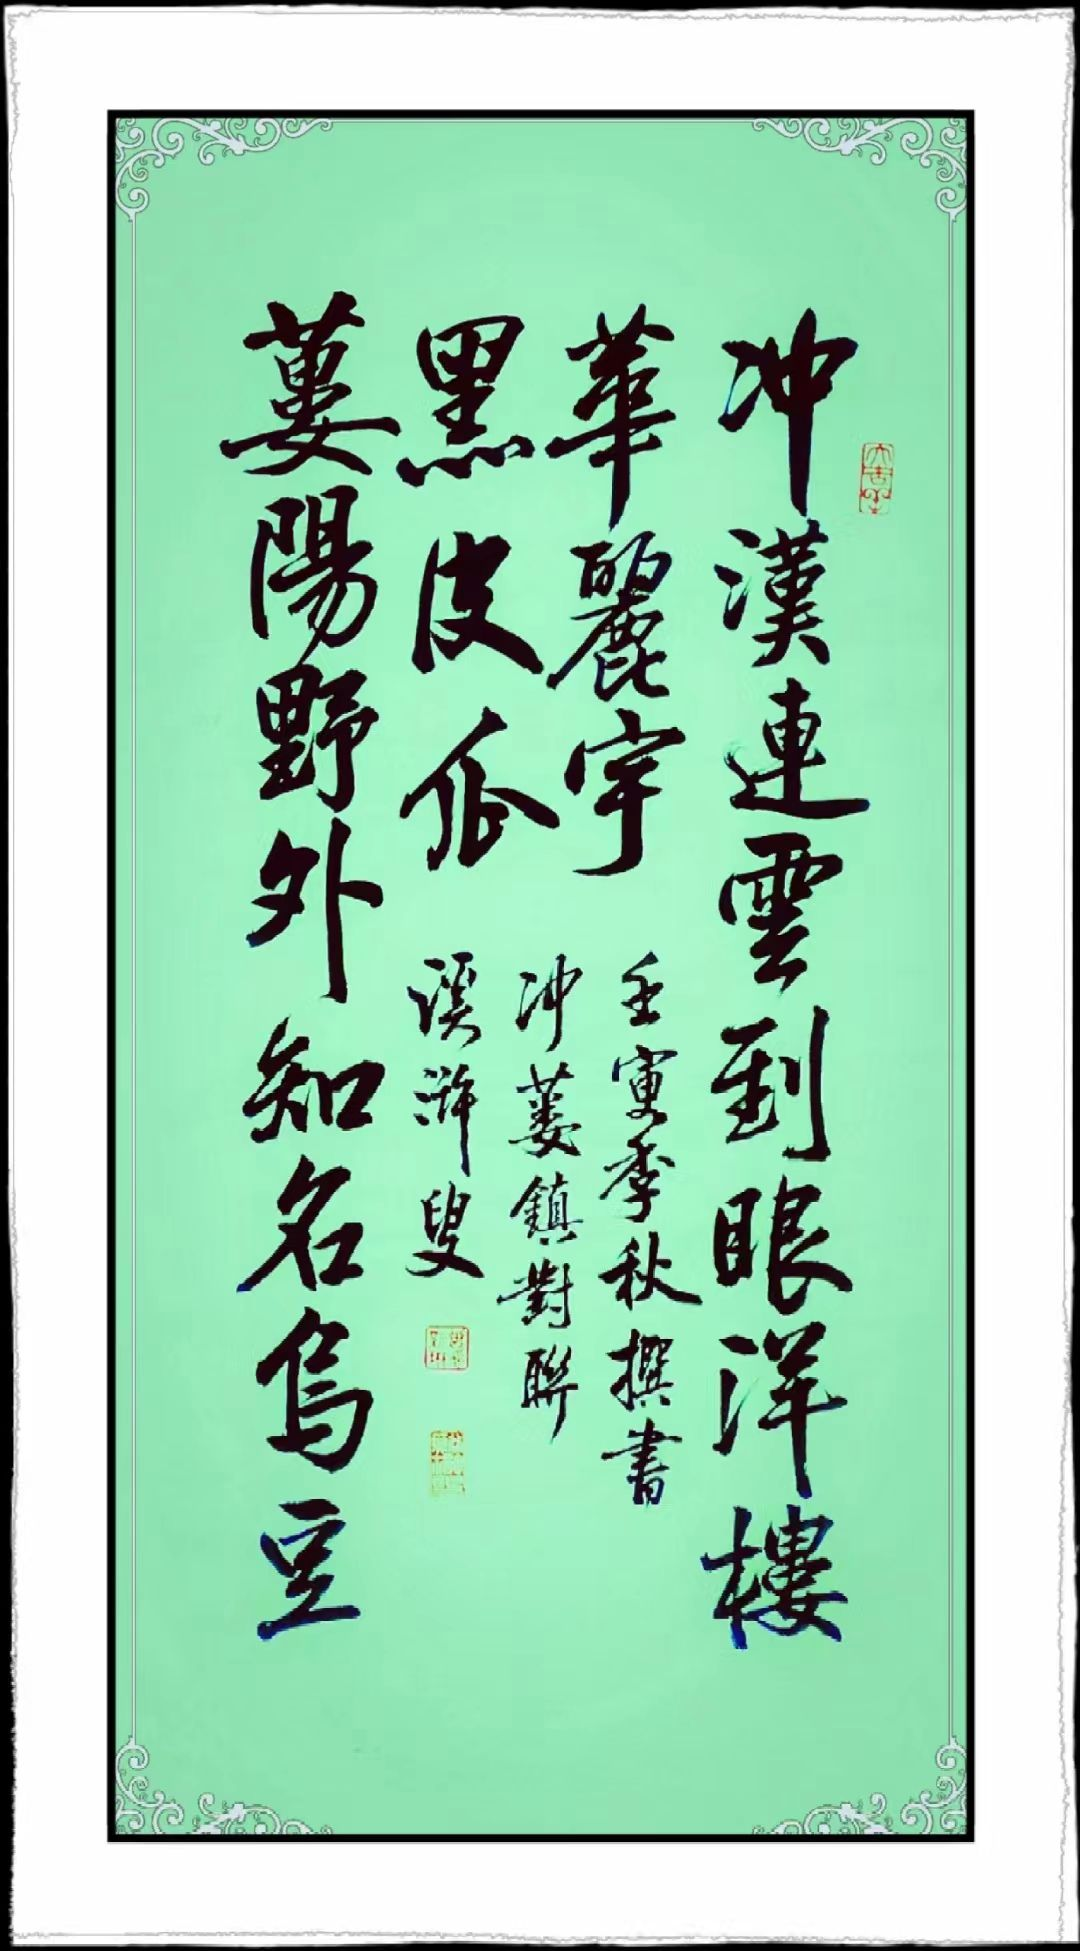 大吉羊
冲漢連雲到眼洋樓
華麗宇
蔞陽野外知名烏豆
黑皮瓜
壬寅季秋撰書
冲蔞鎮對聯
溪滸叟